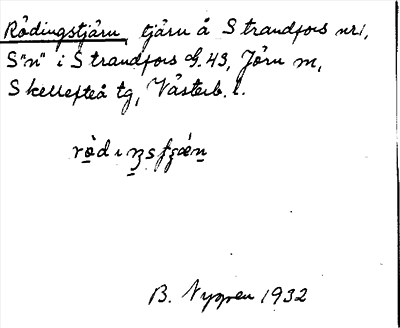 Rödingstjärn, tjärn å Strandfors nr 1,
S"n" i Strandfors G. 43, Jörn sn,
Skellefteå tg, Västerb. l.
B. Nygren 1932